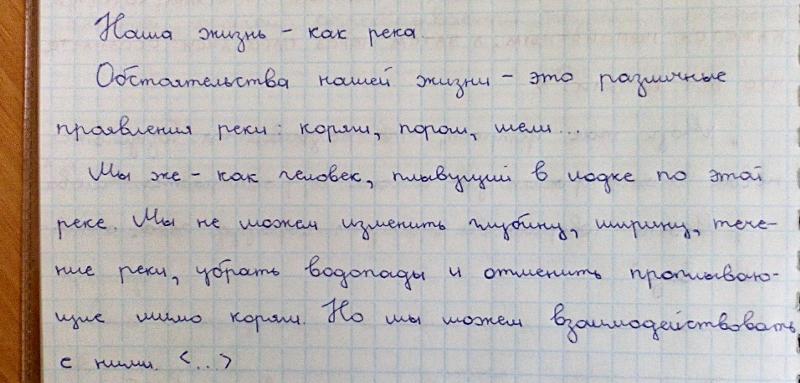 Наша жизнь - как река.
Обстоятельства нашей жизни - это различные
проявления реки: коряги, пороги, мели...
Мы же - как человек, плывущий в лодке по этой
реке. Мы не можем изменить глубину, ширину, тече-
ние реки, убрать водопады и отменить проплываю-
щие мимо коряги. Но мы можем взаимодействовать
с ними. <...>